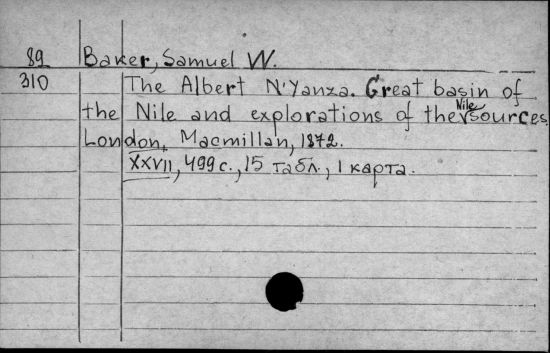 89 Baker, Samuel W.
310 The Albert N'Yanza. Great basin of
the Nile and explorations of the Nile sources.
London, Macmillan, 1872.
XXVII, 499 с., 15 табл., 1 карта.